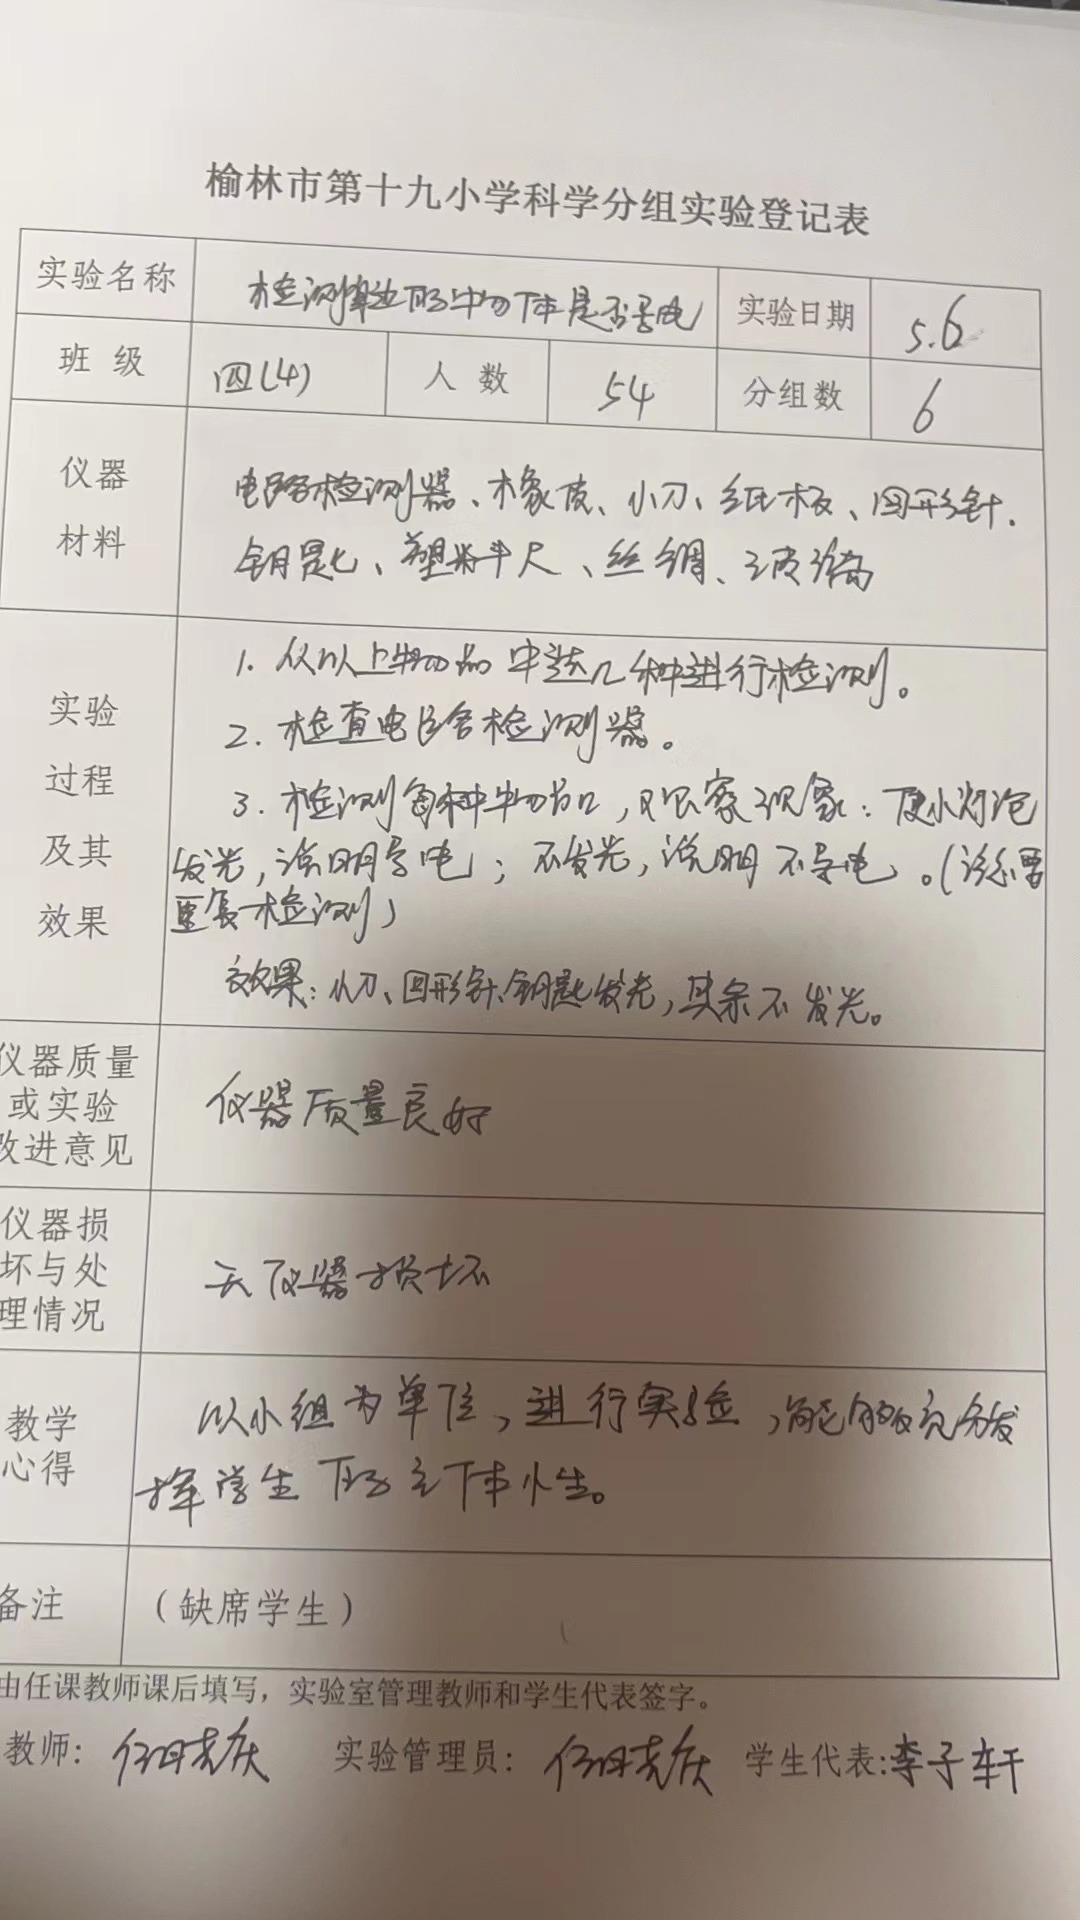 榆林市第十九小学科学分组实验登记表
实验名称 检测身边的物体是否导电 实验日期 5.6
班 级 四(4) 人 数 54 分组数 6
仪器
材料
电路检测器、橡皮、小刀、纸板、回形针、
钥匙、塑料尺、丝绸、玻璃
实验
过程
及其
效果
1. 从以上物品中选几种进行检测。
2. 检查电路检测器。
3. 检测每种物品,观察现象:使小灯泡
发光,说明导电;不发光,说明不导电。(
重复检测)
效果:小刀、回形针、钥匙发光,其余不发光。
仪器质量
或实验
改进意见
仪器质量良好
仪器损
坏与处
理情况
无仪器损坏
教学
心得
以小组为单位,进行实验,能够充分发
挥学生的主体性。
备注 (缺席学生)
由任课教师课后填写,实验室管理教师和学生代表签字。
教师: 实验管理员: 学生代表:李子轩